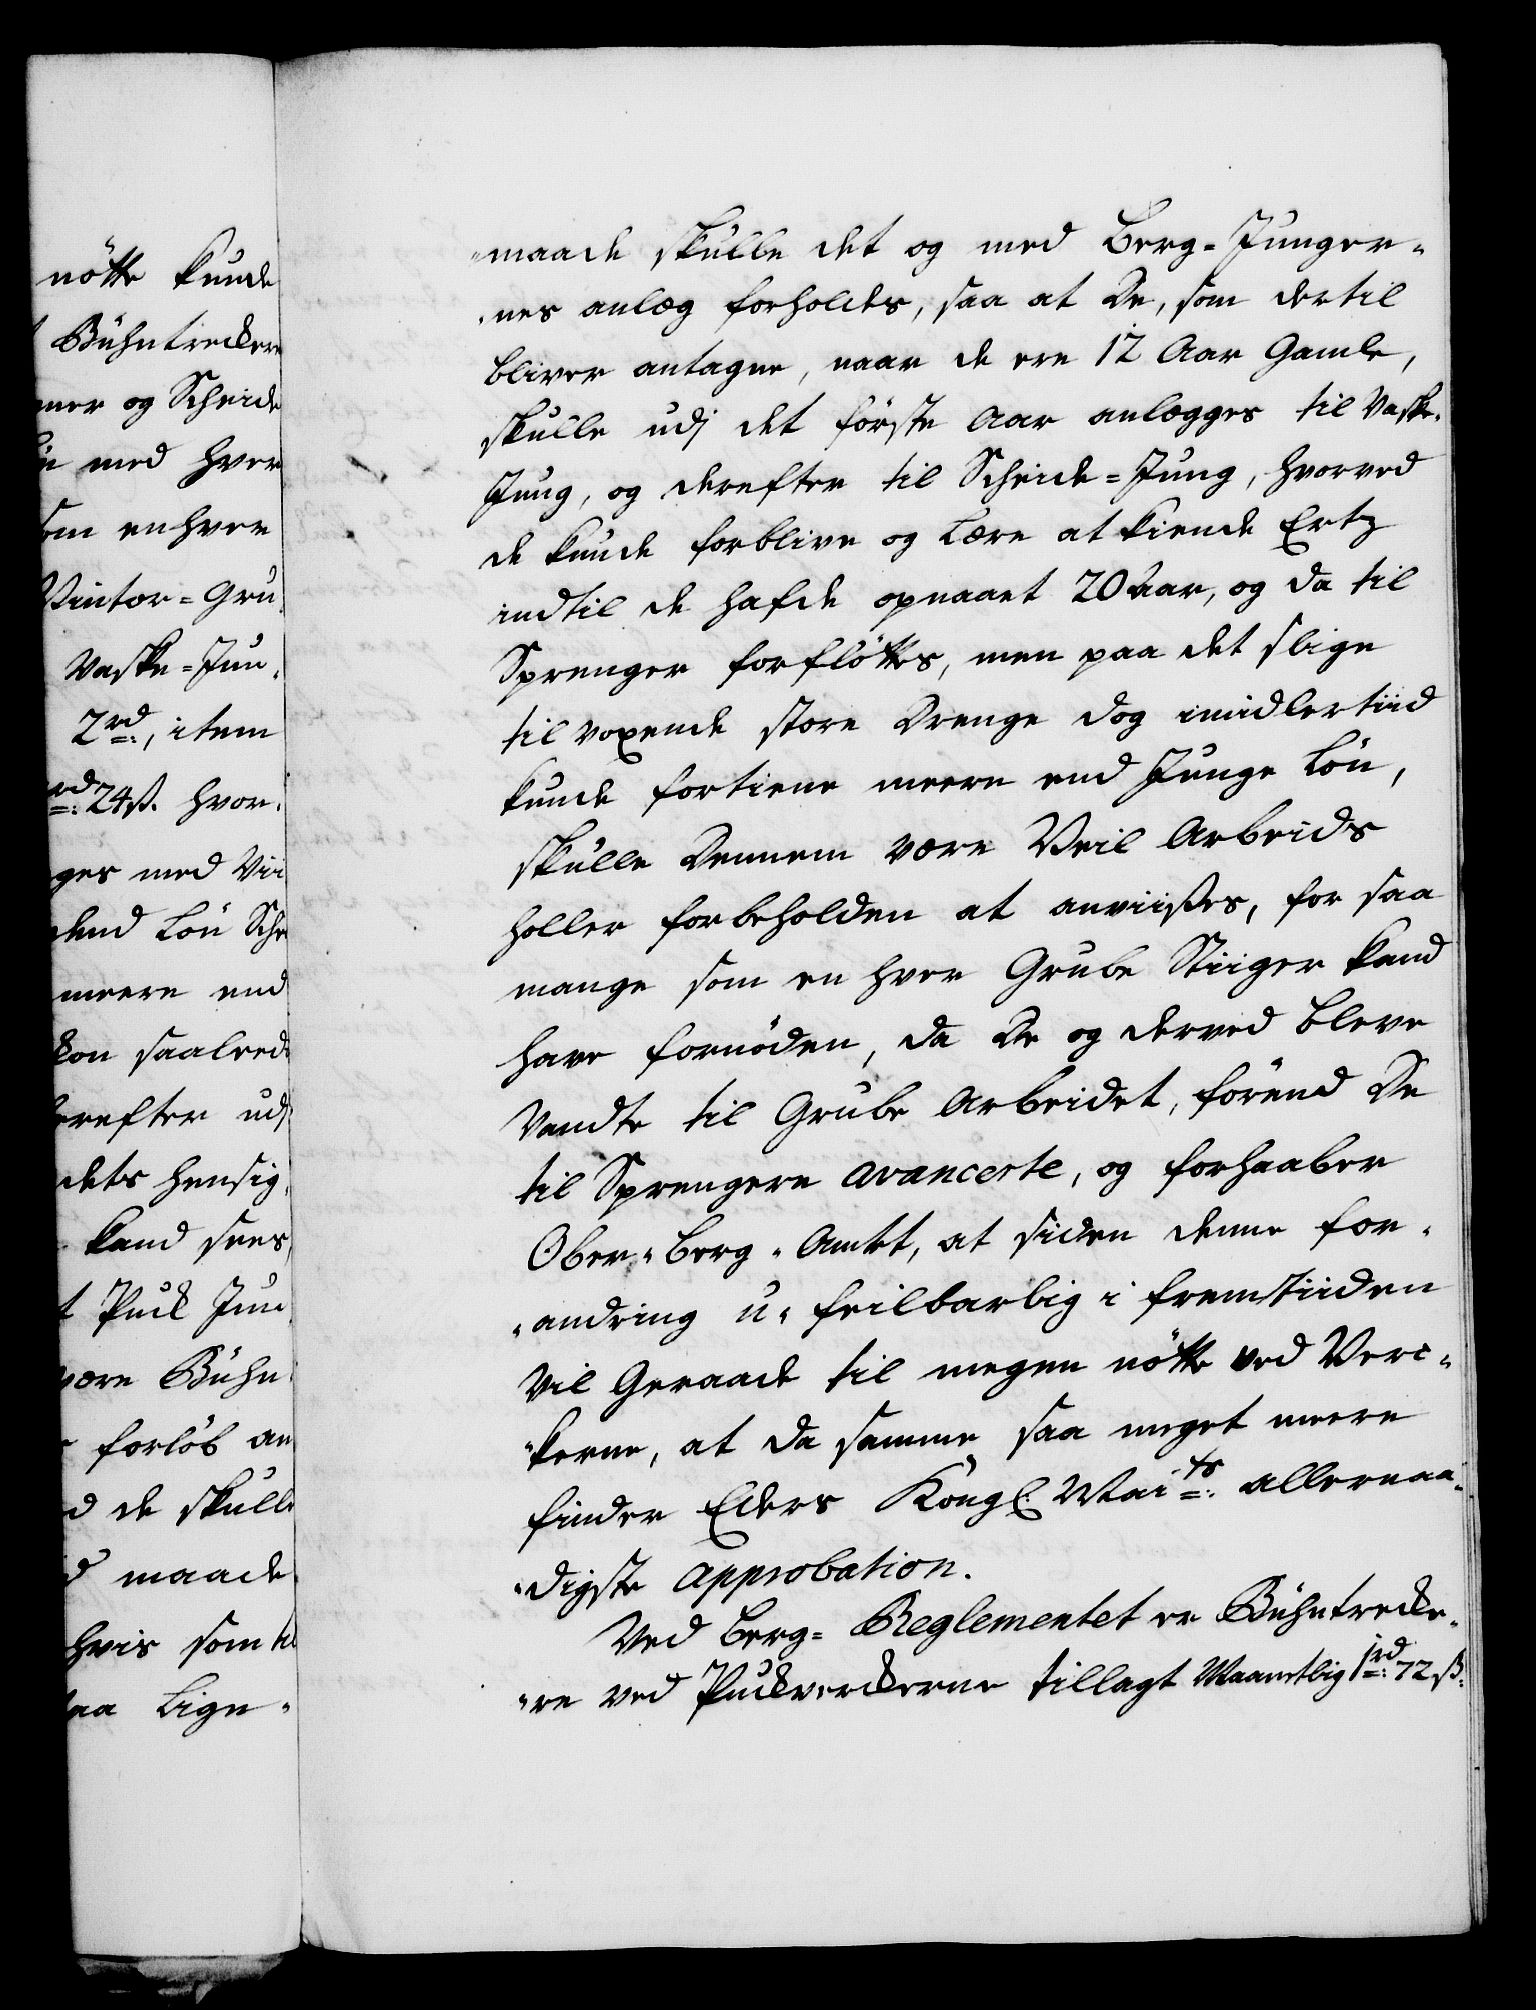 nøtte kunde
Bühntreckere
og Scheide
med hver
enhver
Vinter=Gru
Vaske=Jun
2rd, item
24ß. hvor
med Vii
Løn Sche
meere end
saaleed
udj
hensig
kand sees,
Puck Jun
være Bühn
forløb an
de skulle
maade
hvis som til
Lign-
-maade skulle det og med Berg=Junger-
-nes anlæg forholdes, saa at De, som dertil
bliver antagne, naar de ere 12 Aar Gamle,
skulle udj det første Aar anlægges til Vaske-
Jung, og derefter til Scheide=Jung, hvorved
de kunde forblive og Lære at kiende Ertz
indtil de hafde opnaaet 20 Aar, og da til
Sprenger forfløttes, men paa det slige
til voxende store Drenge dog imidlertiid
kunde fortiene meere end Junge Løn,
skulle Dennem være Weil Arbeids
holler forbeholden at anviißes, for saa
mange som en hver Grube Stiiger kand
have fornøden, da De og derved bleve
Vandte til Grube Arbeidet, førend De
til Sprengere avancerte, og forhaaber
Ober-Berg-Amtet, at siden denne for-
-andring u-feilbarlig i fremtiiden
Vil Geraade til megen nøtte ved Verc-
-kerne, at da samme saa meget meere
finder Eders Kongl. Maits: allernaa-
-digste approbation.
Ved Berg=Reglementet er Bühntrecke-
-re ved Puckverckerne tillagt Maanetlig 1rd: 72ß.